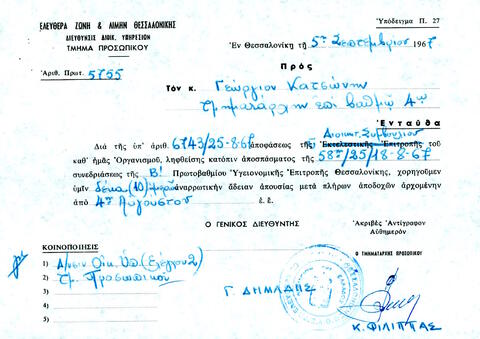 ΕΛΕΥΘΕΡΑ ΖΩΝΗ & ΛΙΜΗΝ ΘΕΣΣΑΛΟΝΙΚΗΣ
ΔΙΕΥΘΥΝΣΙΣ ΔΙΟΙΚ. ΥΠΗΡΕΣΙΩΝ
ΤΜΗΜΑ ΠΡΟΣΩΠΙΚΟΥ
Ὑπόδειγμα Π. 27
Ἐν Θεσσαλονίκῃ τῇ 5ῃ Σεπτεμβρίου 1967
Ἀριθ. Πρωτ. 5755
Πρὸς
Τὸν κ. Γεώργιον Κατσώνην
Τμηματάρχην ἐπὶ βαθμῷ 4ῳ
Ἐνταῦθα
Διοικητ. Συμβουλίου
Διὰ τῆς ὑπ' ἀριθ. 6743/25-8-67 ἀποφάσεως τῆς Ἐκτελεστικῆς Ἐπιτροπῆς τοῦ
καθ' ἡμᾶς Ὀργανισμοῦ, ληφθείσης κατόπιν ἀποσπάσματος τῆς 58ης/25/18-8-67
συνεδριάσεως τῆς Β! Πρωτοβαθμίου Ὑγειονομικῆς Ἐπιτροπῆς Θεσσαλονίκης, χορηγοῦμεν
ὑμῖν δέκα (10) ἡμερῶν ἀναρρωτικὴν ἄδειαν ἀπουσίας μετὰ πλήρων ἀποδοχῶν ἀρχομένην
ἀπὸ 4ης Αὐγούστου ἐ. ἔ.
Ο ΓΕΝΙΚΟΣ ΔΙΕΥΘΥΝΤΗΣ
Ἀκριβὲς Ἀντίγραφον
Αὐθημερὸν
Ο ΤΜΗΜΑΤΑΡΧΗΣ ΠΡΟΣΩΠΙΚΟΥ
ΚΟΙΝΟΠΟΙΗΣΙΣ
1) Δ/νσιν Οἰκ. Ὑπ. (Ἐλέγχου 2)
2) Τμ. Προσωπικοῦ
3)
4)
5)
Γ. ΔΗΜΑΔΗΣ
Κ. ΦΙΛΙΠΠΑΣ